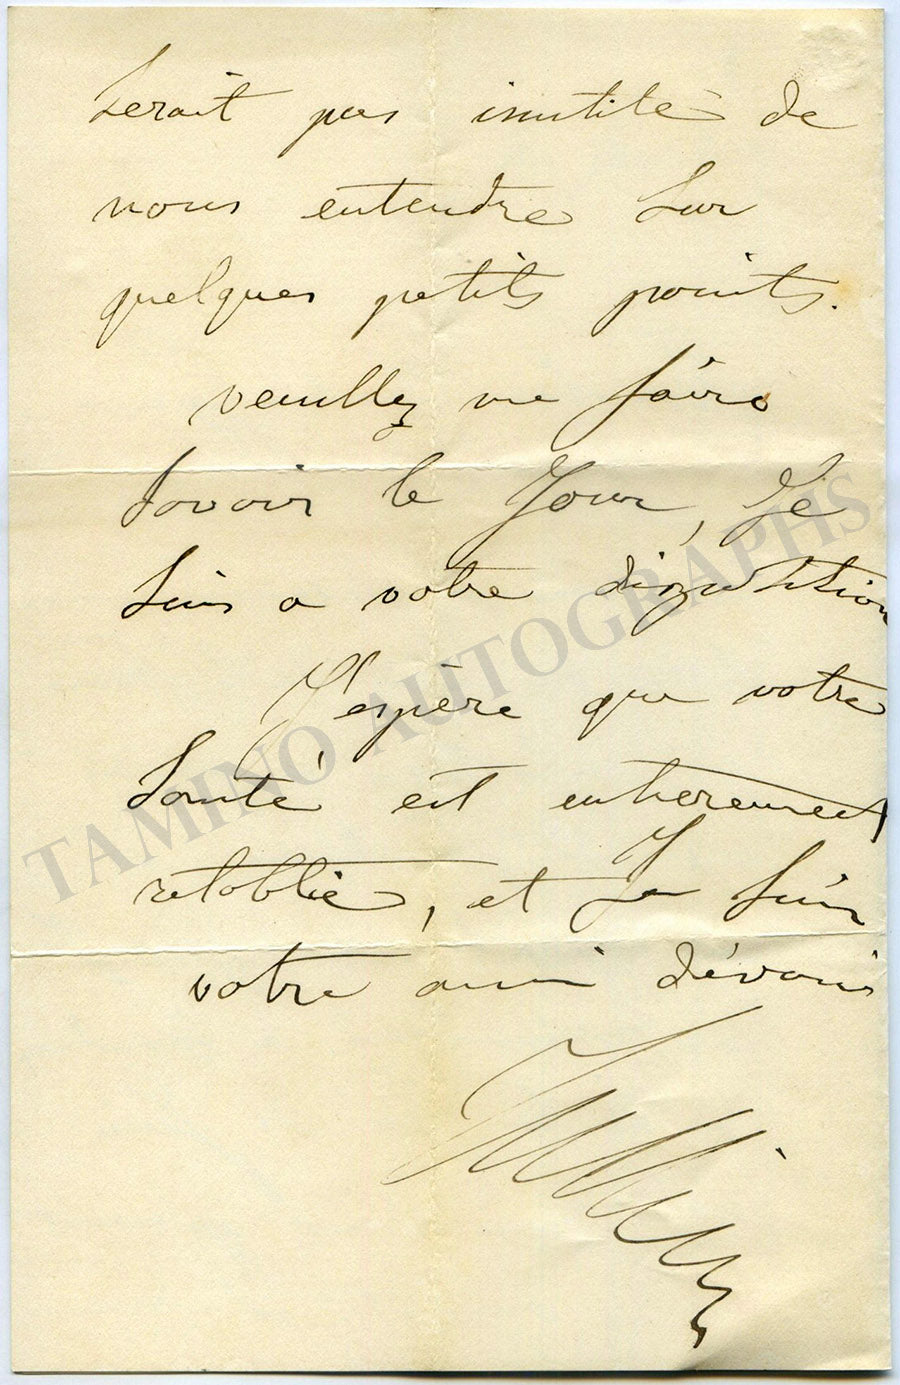 serait pas inutile de
nous entendre sur
quelques petits points.
veuillez me faire
savoir le Jour, Je
suis a votre disposition
J'espère que votre
santé est entierement
retablie, et Je suis
votre ami dévoué
Jullien
TAMINO AUTOGRAPHS